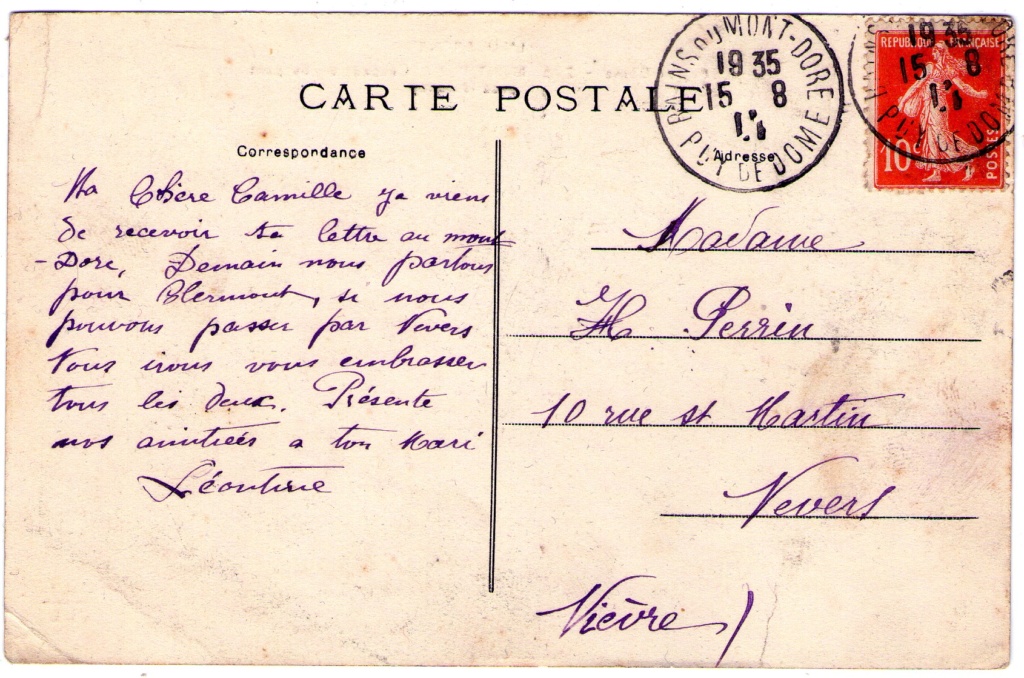 CARTE POSTALE
Correspondance
Ma Chère Camille je viens
de recevoir ta lettre au mont
-Dore, Demain nous partons
pour Clermont, si nous
pouvons passer par Nevers
Nous irons vous embrasser
tous les deux. Présente
nos amitiées a ton Mari
Léontine
BAINS DU MONT-DORE
19 35
15 8
PUY DE DOME
Adresse
Madame
H Perrin
10 rue st Martin
Nevers
Nièvre)
REPUBLIQUE FRANÇAISE
10c
POSTES
19 35
15 8
PUY DE DOME